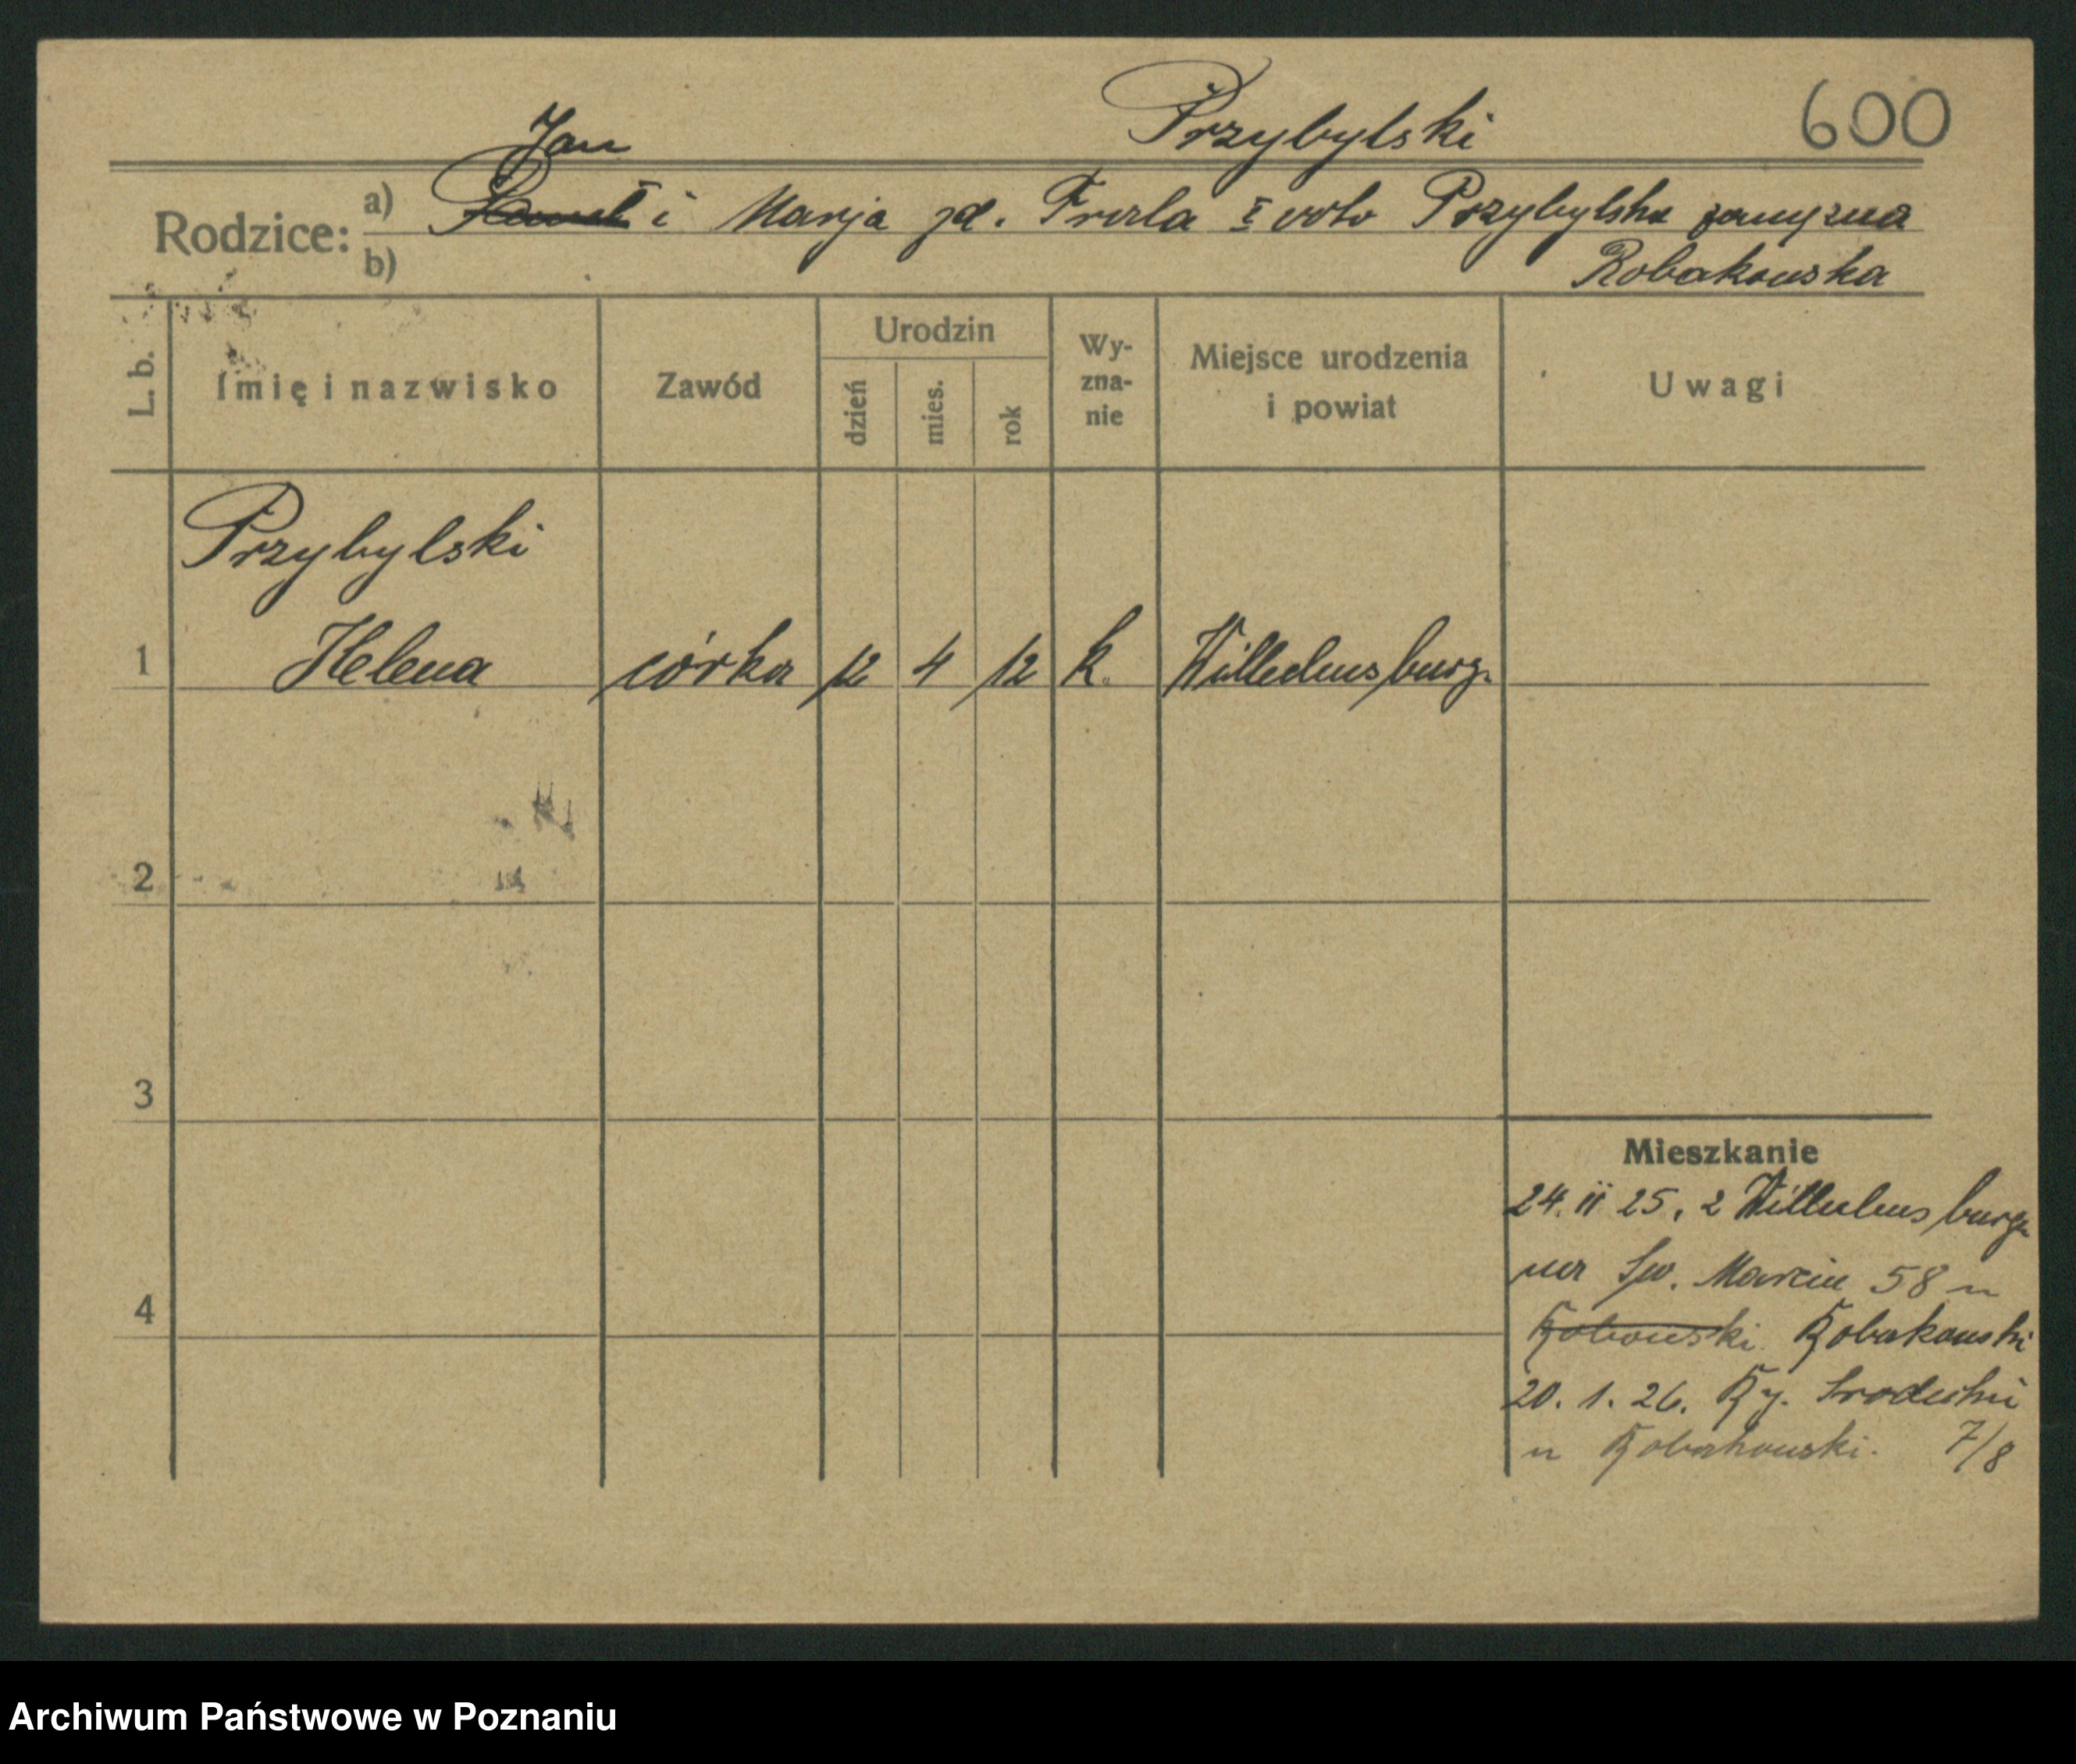 Przybylski 600
Jan
Rodzice: a) i Marja zd. Frala I voto Przybylska zamężna
b) Robakowska
L. b. Imię i nazwisko Zawód Urodzin dzień mies. rok Wy-zna-nie Miejsce urodzenia i powiat Uwagi
Przybylski
1 Helena córka 12 4 12 k. Wilhelmsburg.
2
3
Mieszkanie
24. II 25. z Wilhelmsburg
na Św. Marcin 58 u
4
Robowski. Robakowski
20. 1. 26. Ry. Śródecki
u Robakowski. 7/8
Archiwum Państwowe w Poznaniu